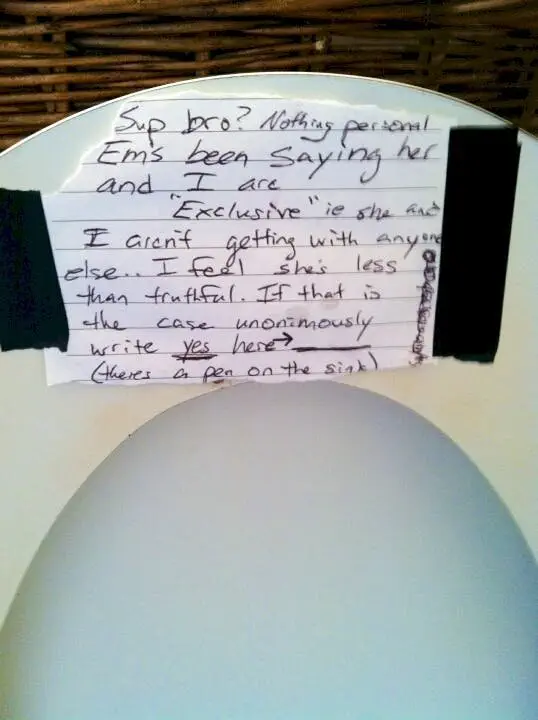 Sup bro? Nothing personal
Em's been saying her
and I are
"Exclusive" ie she and
I aren't getting with anyone
else.. I feel she's less
than truthful. If that is
the case unonimously
write yes here→
(theres a pen on the sink)